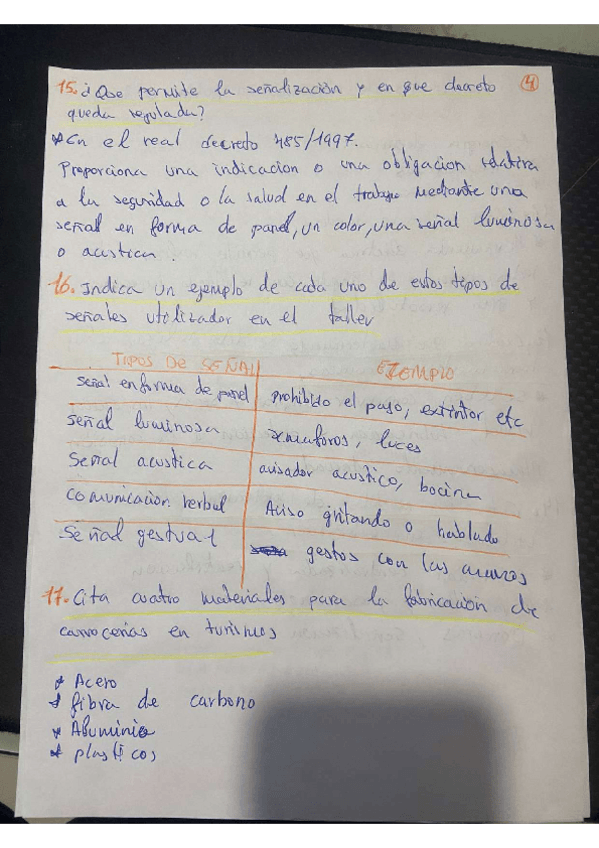 15. ¿Que permite la señalización y en que decreto
4
queda regulada?
* En el real decreto 485/1997.
Proporciona una indicacion o una obligacion relativa
a la seguridad o la salud en el trabajo mediante una
señal en forma de panel, un color, una señal luminosa
o acustica
16. Indica un ejemplo de cada uno de estos tipos de
señales utilizador en el taller
TIPOS DE SEÑAL
EJEMPLO
señal en forma de panel
prohibido el paso, extintor etc
señal luminosa
semaforos, luces
señal acustica
avisador acustico, bocina
comunicación verbal
Aviso gritando o hablado
señal gestual
gestos con las manos
17. Cita cuatro materiales para la fabricación de
carrocerias en turismos
* Acero
* fibra de carbono
* Aluminio
* plasticos